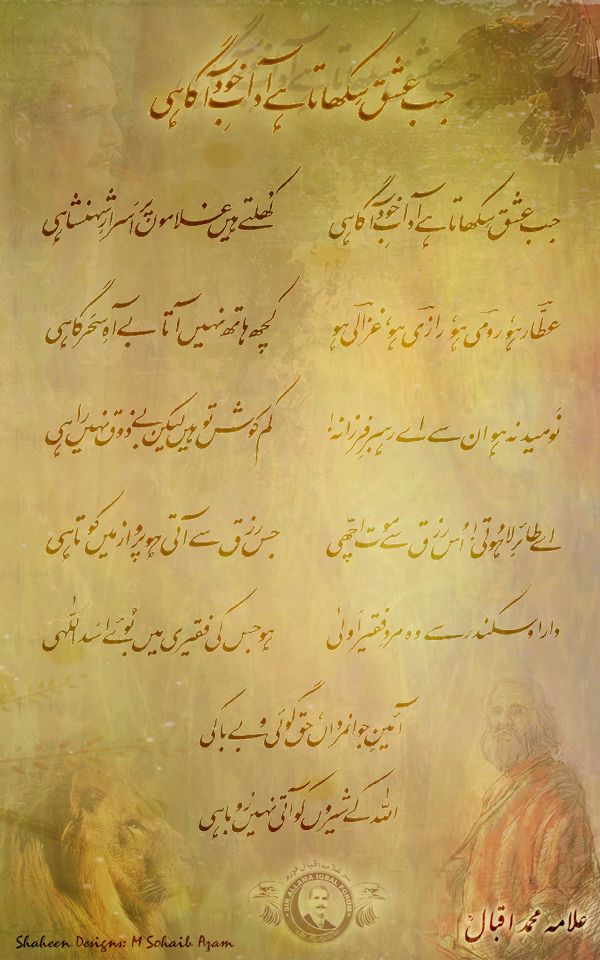 جب عشق سکھاتا ہے آدابِ خود آگاہی
جب عشق سکھاتا ہے آدابِ خود آگاہی
کھُلتے ہیں غلاموں پر اَسرارِ شہنشاہی
عطّارؔ ہو، رومیؔ ہو، رازیؔ ہو، غزالیؔ ہو
کچھ ہاتھ نہیں آتا بے آہِ سَحرگاہی
نَومید نہ ہو ان سے اے رہبرِ فرزانہ!
کم کوش تو ہیں لیکن بے ذوق نہیں راہی
اے طائرِ لاہُوتی! اُس رزق سے مَوت اچھّی
جس رزق سے آتی ہو پرواز میں کوتاہی
دارا و سکندر سے وہ مردِ فقیر اَولیٰ
ہو جس کی فقیری میں بُوئے اسَد اللّٰہی
آئینِ جوانمرداں، حق گوئی و بے باکی
اللہ کے شیروں کو آتی نہیں رُوباہی
سر علامہ اقبال فورم
SIR ALLAMA IQBAL FORUM
علامہ محمد اقبالؒ
Shaheen Designs: M Sohaib Azam